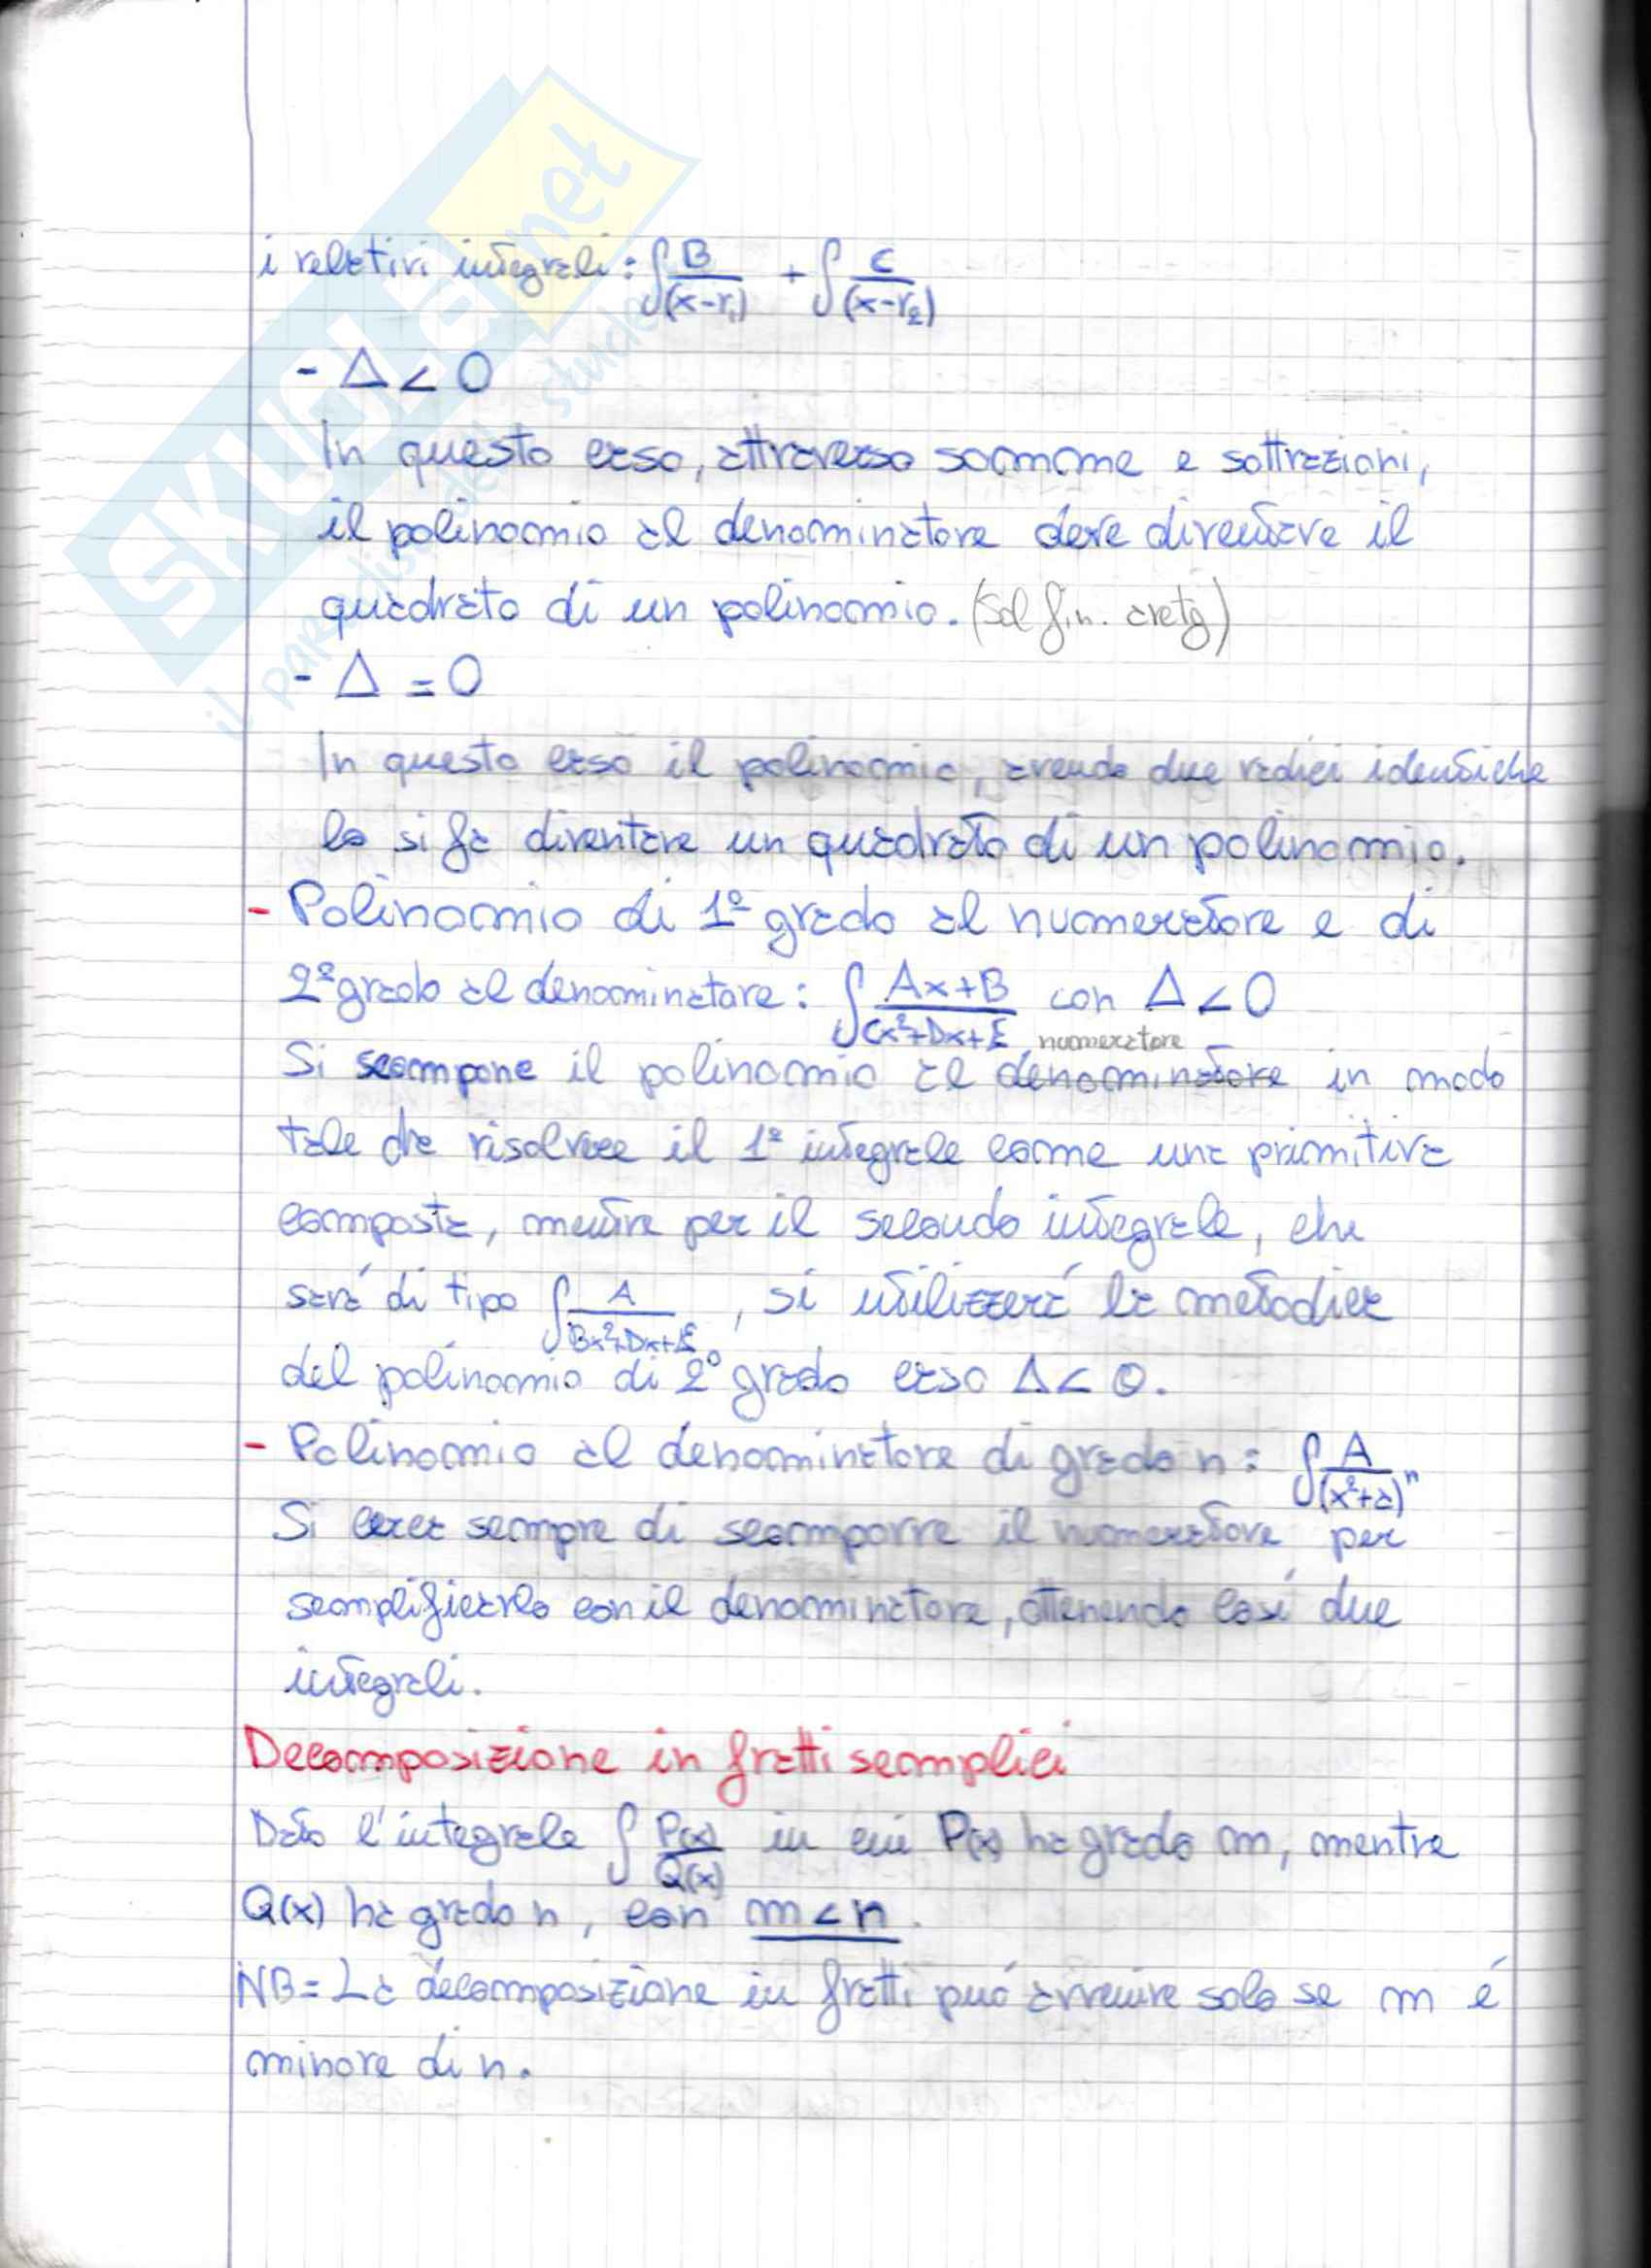 SKUOLA.net
il paradiso dello studente
i relativi integrali: ∫ B/(x-r₁) + ∫ C/(x-r₂)
- Δ < 0
In questo caso, attraverso somme e sottrazioni,
il polinomio al denominatore deve diventare il
quadrato di un polinomio. (Sol fin. arctg)
- Δ = 0
In questo caso il polinomio, avendo due radici identiche
lo si fa diventare un quadrato di un polinomio.
- Polinomio di 1º grado al numeratore e di
2º grado al denominatore: ∫ Ax+B/Cx²+Dx+E con Δ < 0
numeratore
Si scompone il polinomio al denominatore in modo
tale che risolvere il 1º integrale come una primitiva
composta, mentre per il secondo integrale, che
sará di tipo ∫ A/Bx²+Dx+E, si utilizzerá la metodica
del polinomio di 2º grado caso Δ < 0.
- Polinomio al denominatore di grado n: ∫ A/(x²+a)ⁿ
Si cerca sempre di scomporre il numeratore per
semplificarlo con il denominatore, ottenendo cosí due
integrali.
Decomposizione in fratti semplici
Dato l'integrale ∫ P(x)/Q(x) in cui P(x) ha grado m, mentre
Q(x) ha grado n, con m < n.
NB = La decomposizione in fratti puó avvenire solo se m é
minore di n.